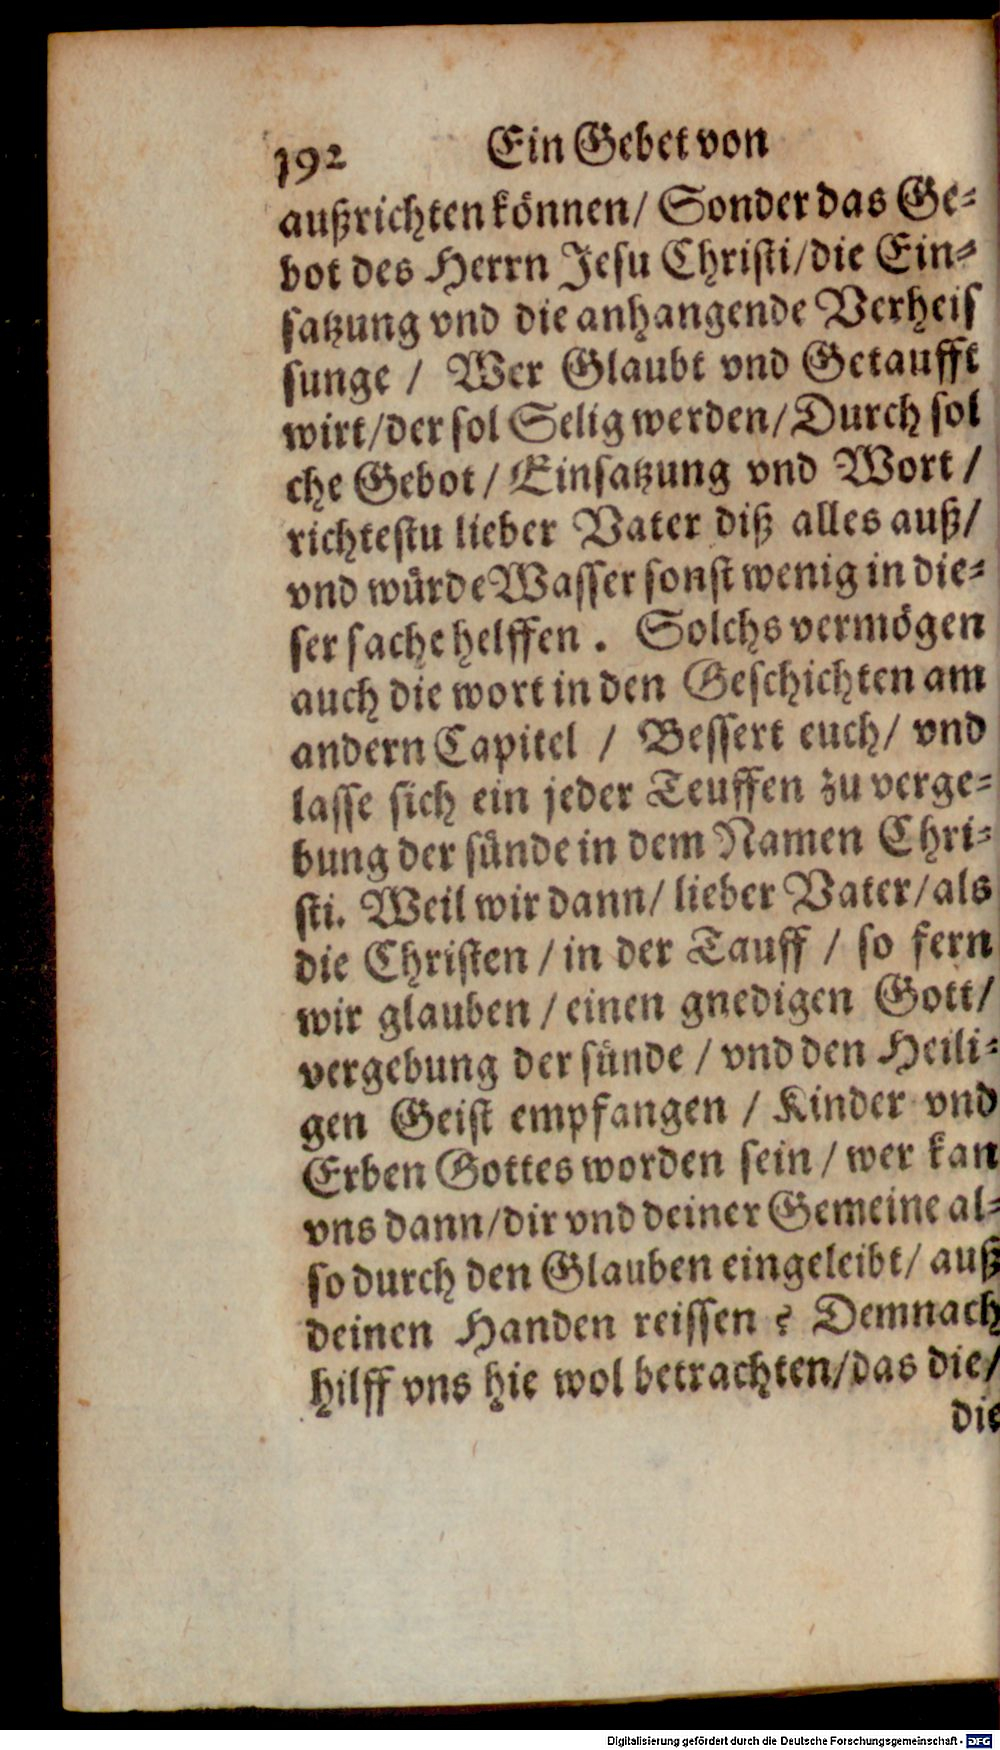 192 Ein Gebet von
außrichten können/ Sonder das Ge-
bot des Herrn Jesu Christi/die Ein-
satzung vnd die anhangende Verheis
sunge / Wer Glaubt vnd Getaufft
wirt/der sol Selig werden/Durch sol
che Gebot / Einsatzung vnd Wort /
richtestu lieber Vater diß alles auß/
vnd würde Wasser sonst wenig in die-
ser sache helffen. Solchs vermögen
auch die wort in den Geschichten am
andern Capitel / Bessert euch/ vnd
lasse sich ein jeder Teuffen zu verge-
bung der sünde in dem Namen Chri-
sti. Weil wir dann/ lieber Vater/als
die Christen / in der Tauff / so fern
wir glauben / einen gnedigen Gott/
vergebung der sünde / vnd den Heili-
gen Geist empfangen / Kinder vnd
Erben Gottes worden sein / wer kan
vns dann/dir vnd deiner Gemeine al-
so durch den Glauben eingeleibt/ auß
deinen Handen reissen ? Demnach
hilff vns hie wol betrachten/das die/
die
Digitalisierung gefördert durch die Deutsche Forschungsgemeinschaft - DFG